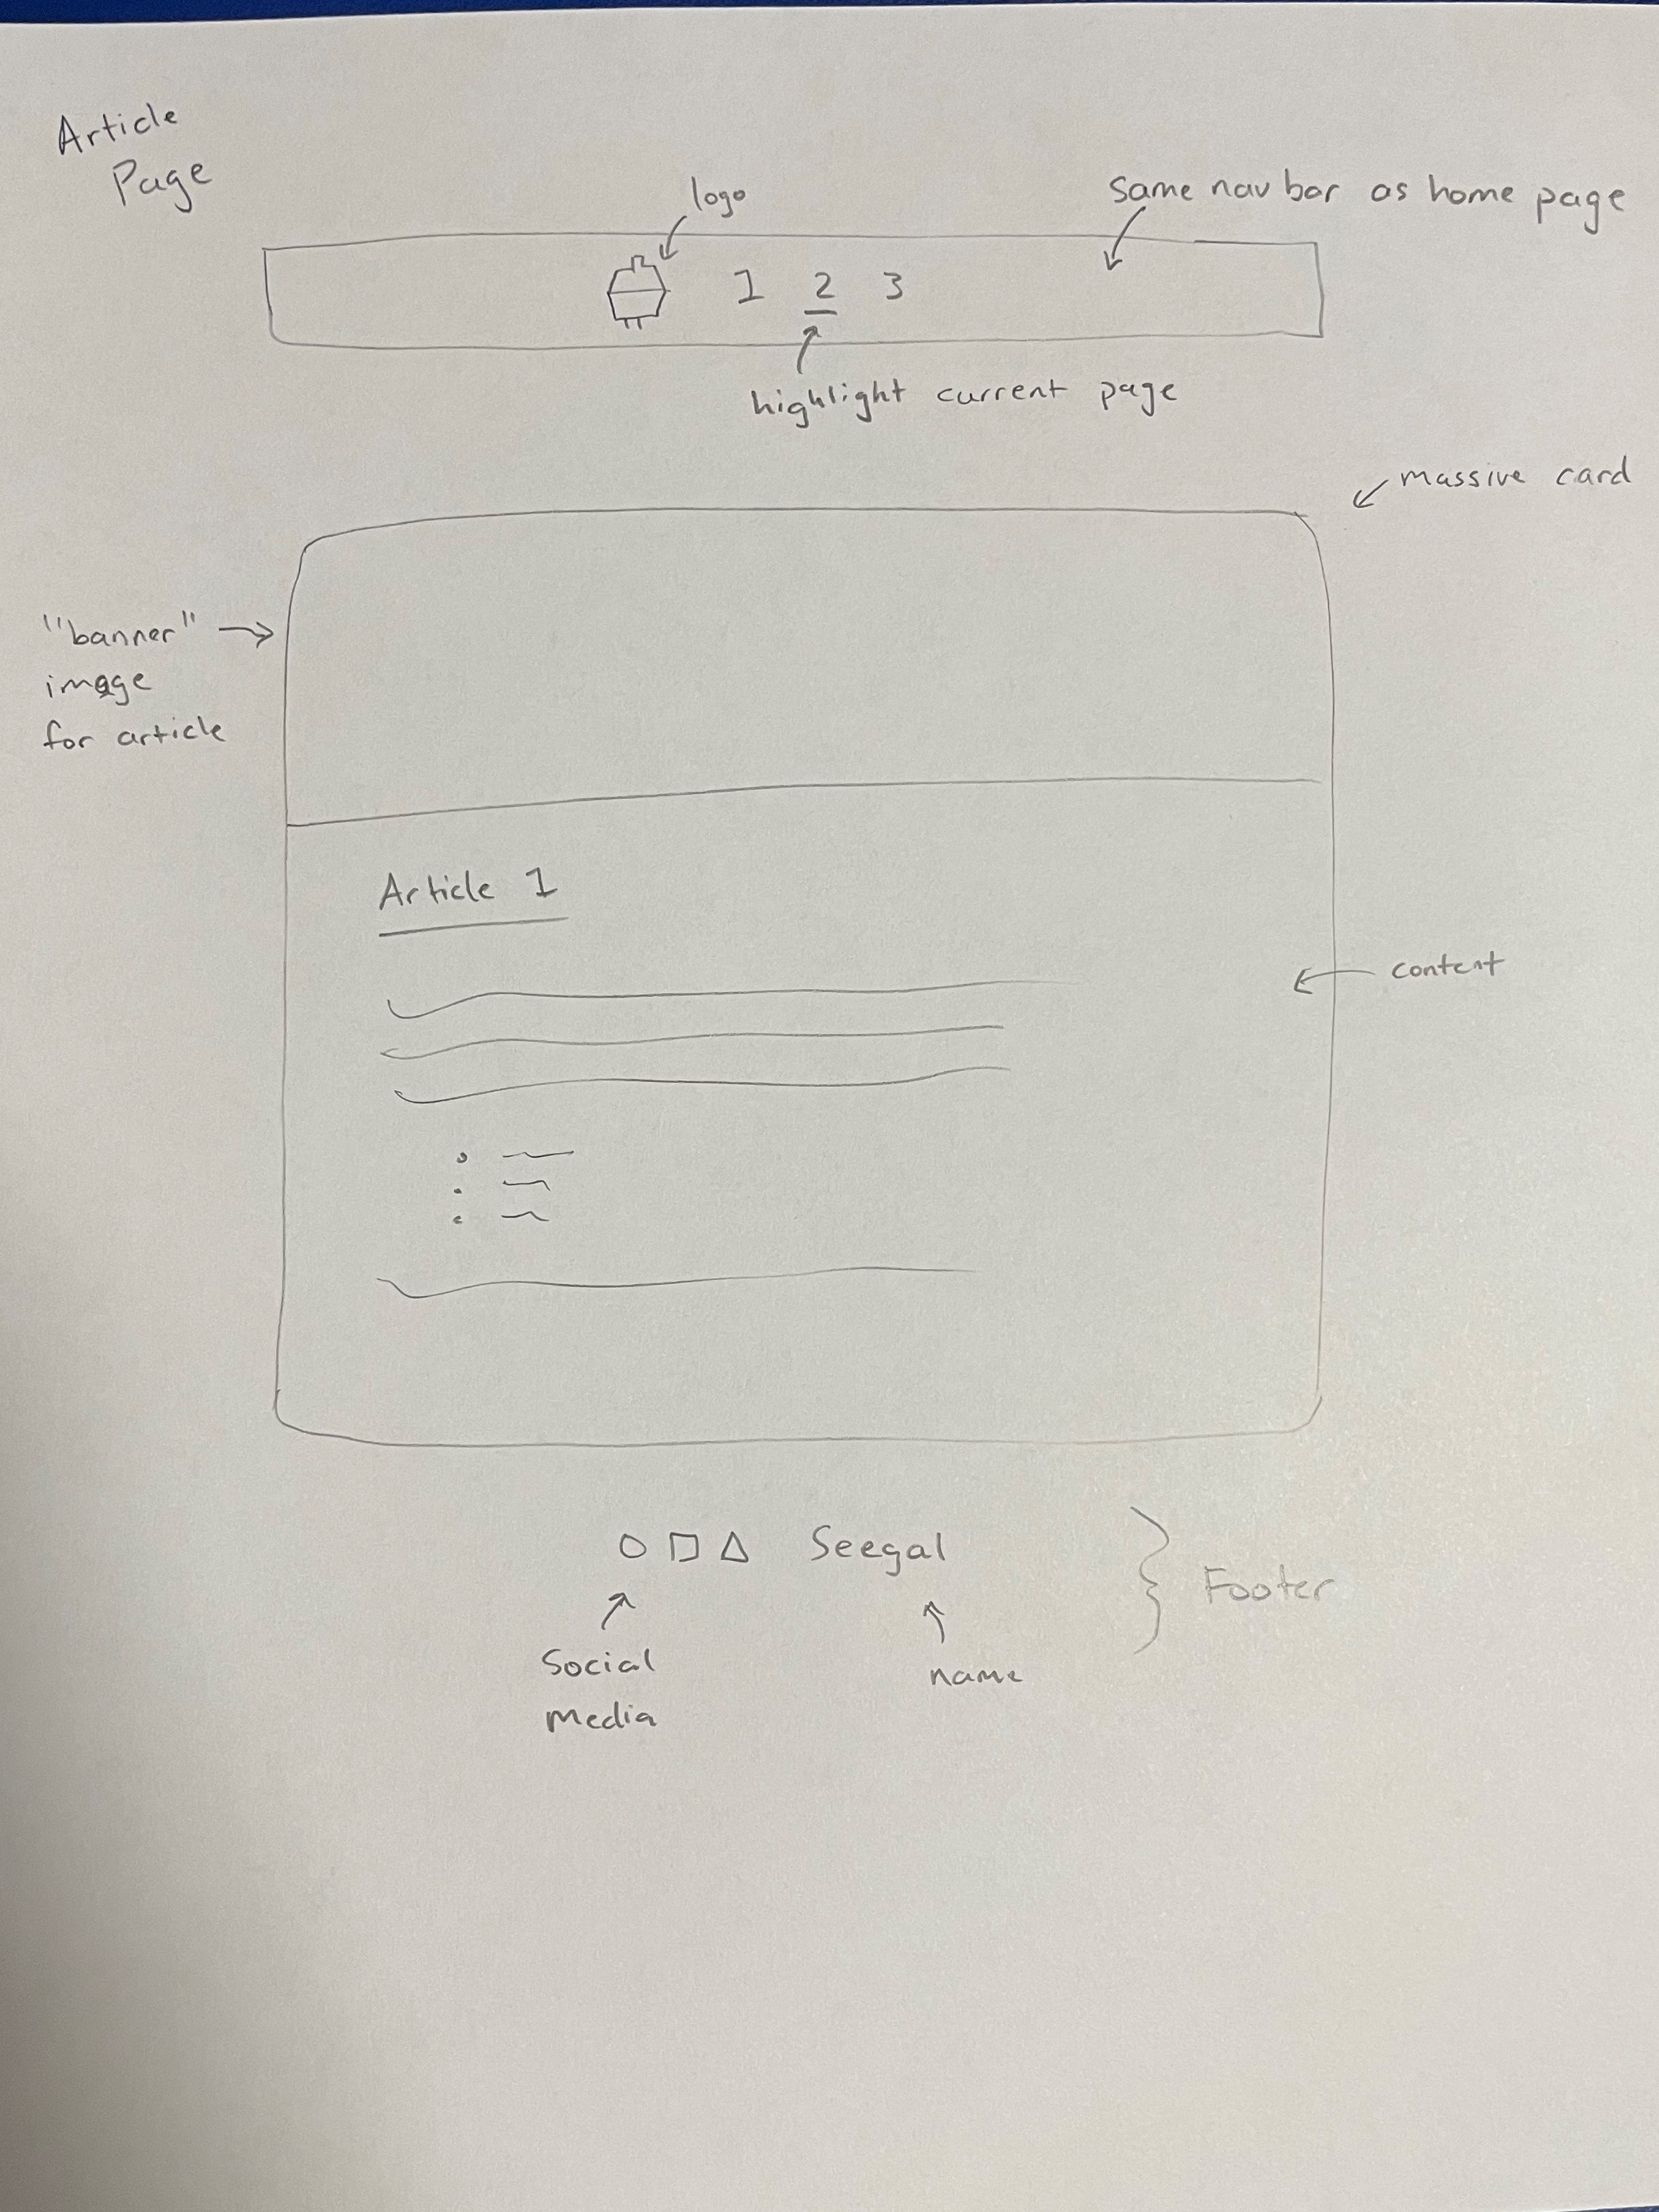 Article
Page
logo
same nav bar as home page
1 2 3
highlight current page
massive card
"banner"
image
for article
Article 1
content
Seegal
Footer
Social
media
name